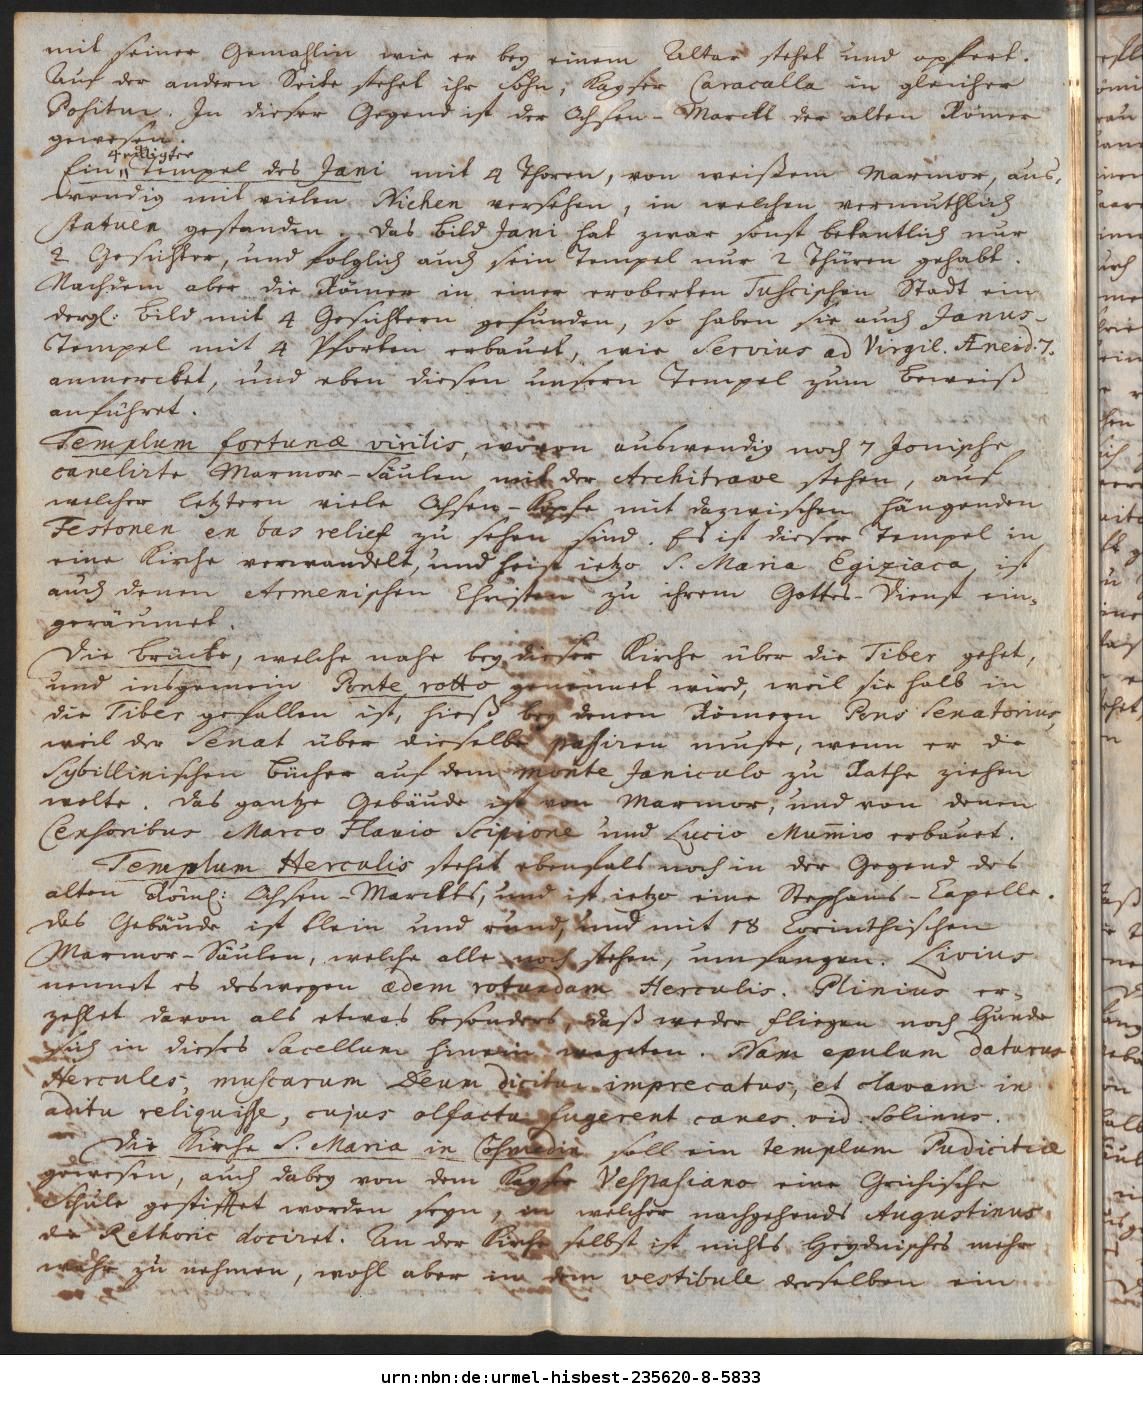 mit seiner Gemahlin wie er bey einem Altar stehet und opfert.
Auf der andern Seite stehet ihr Sohn, Kayser Caracalla in gleicher
Positur. In dieser Gegend ist der Ochsen-Marckt der alten Römer
gewesen.
Ein Tempel des Jani mit 4 Thoren, von weißem Marmor, aus,
wendig mit vielen Nichen versehen, in welchen vermuthlich
Statuen gestanden. Das Bild Jani hat zwar sonst bekantlich nur
2 Gesichter, und folglich auch sein Tempel nur 2 Thüren gehabt.
Nachdem aber die Römer in einer eroberten Tuscischen Stadt ein
dergl: Bild mit 4 Gesichtern gefunden, so haben sie auch Janus-
Tempel mit 4 Pforten erbauet, wie Servius ad Virgil. Æneid. 7.
anmercket, und eben diesen unsern Tempel zum Beweiß
anführet.
Templum fortunæ virilis, wovon auswendig noch 7 Jonische
canelirte Marmor-Säulen mit der Architrave stehen, auf
welcher letztern viele Ochsen-Köpfe mit dazwischen hängenden
Festonen en bas relief zu sehen sind. Es ist dieser Tempel in
eine Kirche verwandelt, und heist ietzo S. Maria Egiziaca, ist
auch denen Armenischen Christen zu ihrem Gottes-Dienst ein,
geräumet.
Die Brücke, welche nahe bey dieser Kirche über die Tiber gehet,
und insgemein Ponte rotto genennet wird, weil sie halb in
die Tiber gefallen ist, hieß bey denen Römern Pons Senatorius,
weil der Senat über dieselbe passiren muste, wenn er die
Sybillinischen Bücher auf dem monte Janiculo zu Rathe ziehen
wolte. Das gantze Gebäude ist von Marmor, und von denen
Censoribus Marco Flavio Scipione und Lucio Mum̄io erbauet.
Templum Herculis stehet ebenfals noch in der Gegend des
alten Röml: Ochsen-Marckts, und ist ietzo eine Stephans-Capelle.
Das Gebäude ist klein und rund, und mit 18 Corinthischen
Marmor-Säulen, welche alle noch stehen, umfangen. Livius
nennet es deswegen ædem rotundam Herculis. Plinius er,
zehlet davon als etwas besonders, daß weder Fliegen noch Hunde
sich in dieses Sacellum hinein wageten. Nam epulum daturus
Hercules, muscarum Deum dicitur imprecatus, et clavam in
aditu reliquisse, cujus olfactu fugerent canes. vid. Solinus.
Die Kirche S. Maria in Cosmedin soll ein templum Pudicitiæ
gewesen, auch dabey von dem Kayser Vespasiano eine Grichische
Schule gestifftet worden seyn, in welcher nachgehends Augustinus
die Rethoric dociret. An der Kirche selbst ist nichts Heydnisches mehr
wahr zu nehmen, wohl aber in dem vestibule derselben ein
urn:nbn:de:urmel-hisbest-235620-8-5833